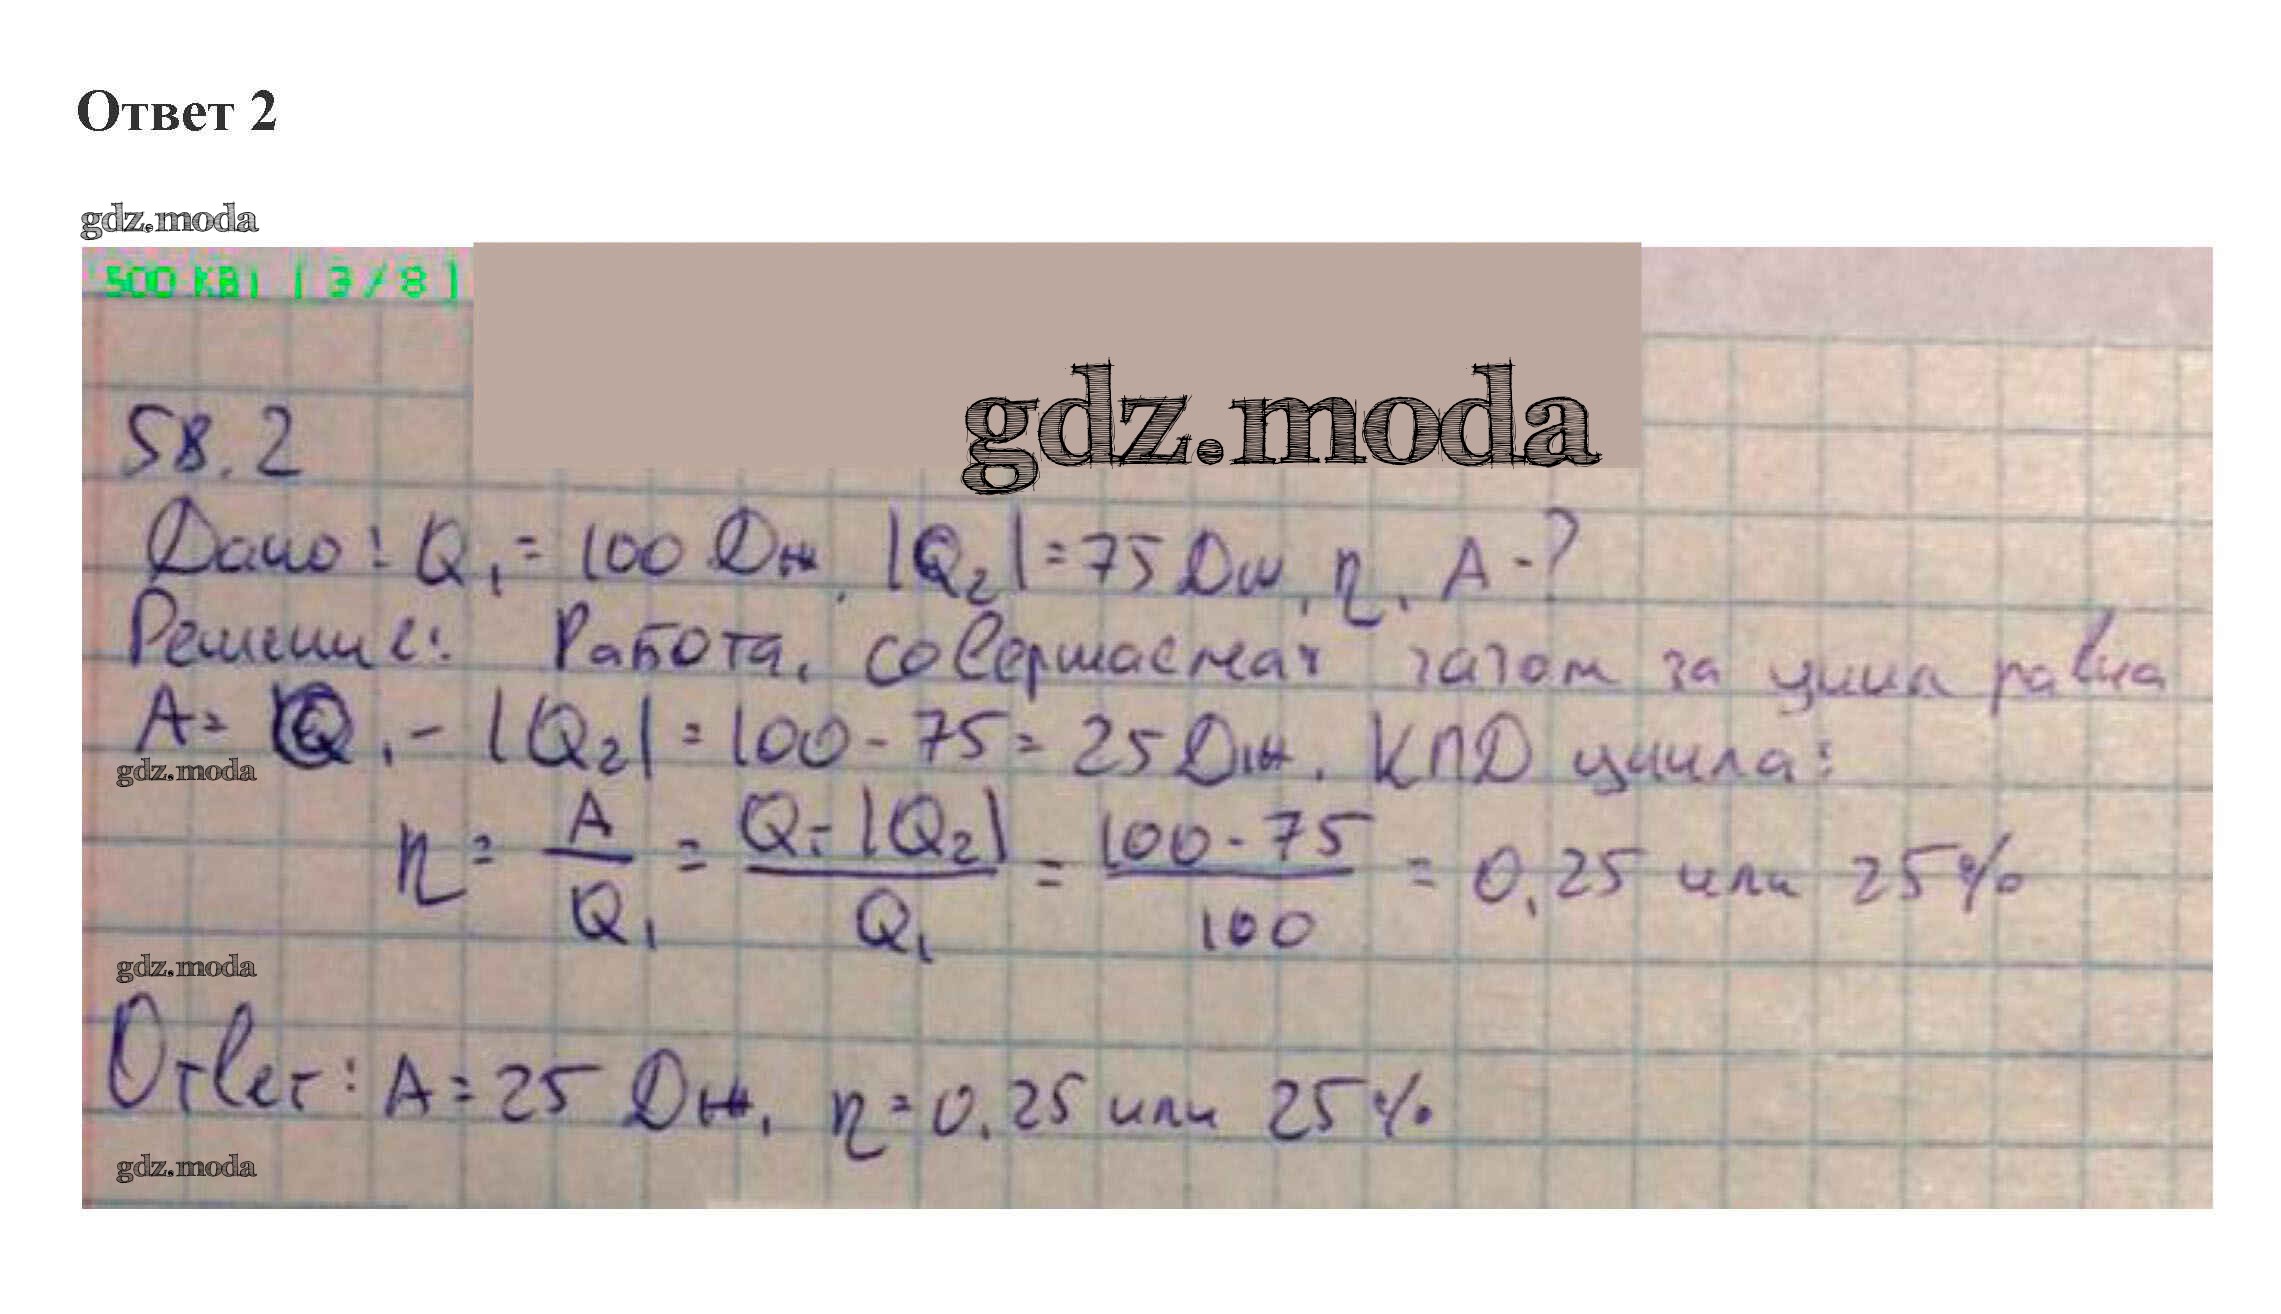 Ответ 2
gdz.moda
500 KB) [ 3 / 8 ]
gdz.moda
58.2
Дано: Q₁ = 100 Дж, |Q₂| = 75 Дж, η, A - ?
Решение: Работа, совершаемая газом за цикл равна
A = Q₁ - |Q₂| = 100 - 75 = 25 Дж. КПД цикла:
gdz.moda
η = A/Q₁ = Q₁ - |Q₂|/Q₁ = 100 - 75/100 = 0,25 или 25%
gdz.moda
Ответ: A = 25 Дж, η = 0,25 или 25%
gdz.moda